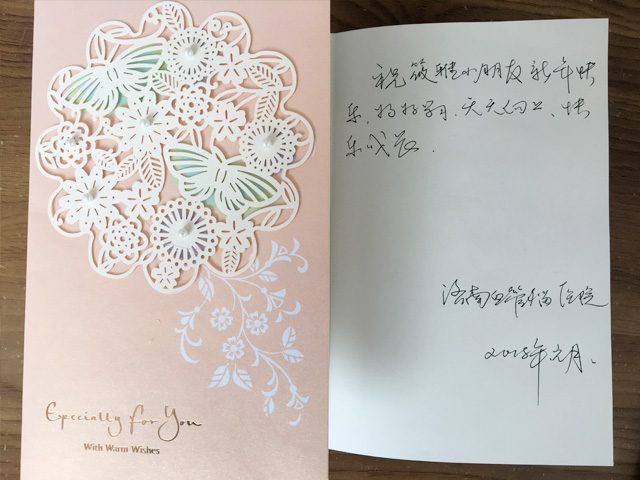 Especially for You
With Warm Wishes
祝筱雅小朋友新年快
乐、好好学习、天天向上、快
乐成长.
济南血管瘤医院
2018年元月.